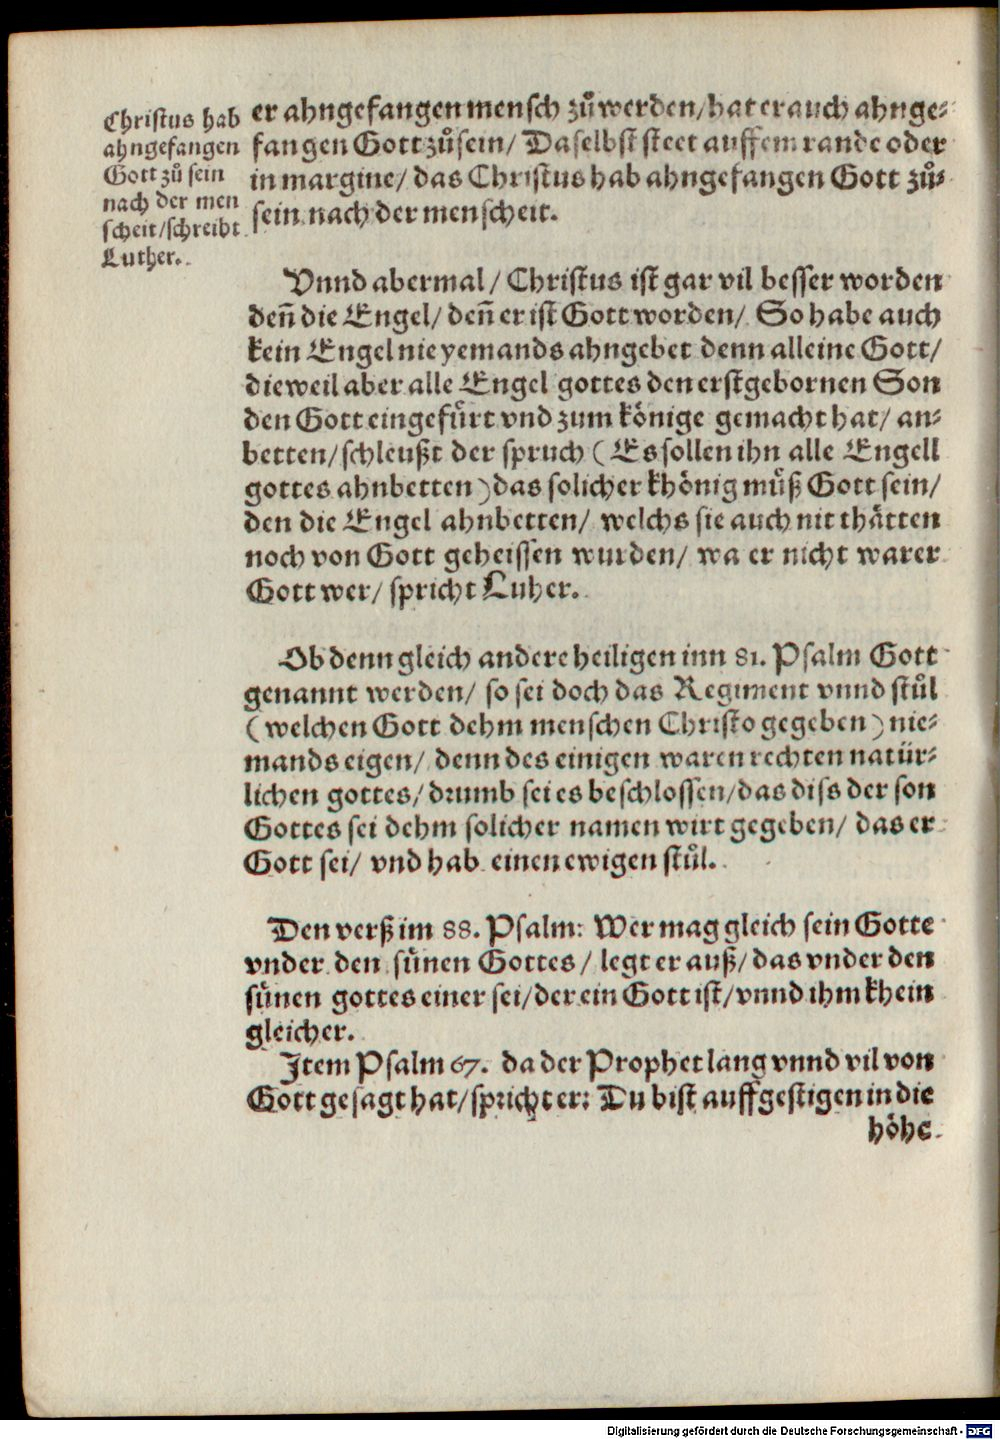 Christus hab
ahngefangen
Gott zů sein
nach der men
scheit/schreibt
Luther.
er ahngefangen mensch zů werden/hat er auch ahnge⸗
fangen Gott zů sein/ Daselbst steet auffem rande oder
in margine/ das Christus hab ahngefangen Gott zů⸗
sein nach der menscheit.
Vnnd abermal/ Christus ist gar vil besser worden
deñ die Engel/ deñ er ist Gott worden/ So habe auch
kein Engel nie yemands ahngebet denn alleine Gott/
dieweil aber alle Engel gottes den erstgebornen Son
den Gott eingefůrt vnd zum kônige gemacht hat/ an⸗
betten/schleußt der spruch (Es sollen ihn alle Engell
gottes ahnbetten) das solicher khônig můß Gott sein/
den die Engel ahnbetten/ welchs sie auch nit thåtten
noch von Gott geheissen wurden/ wa er nicht warer
Gott wer/ spricht Luher.
Ob denn gleich andere heiligen inn 81. Psalm Gott
genannt werden/ so sei doch das Regiment vnnd stůl
(welchen Gott dehm menschen Christo gegeben) nie⸗
mands eigen/ denn des einigen waren rechten natür⸗
lichen gottes/ drumb sei es beschlossen/das diss der son
Gottes sei dehm solicher namen wirt gegeben/ das er
Gott sei/ vnd hab einen ewigen stůl.
Den verß im 88. Psalm: Wer mag gleich sein Gotte
vnder den sünen Gottes/ legt er auß/ das vnder den
sünen gottes einer sei/der ein Gott ist/vnnd ihm khein
gleicher.
Item Psalm 67. da der Prophet lang vnnd vil von
Gott gesagt hat/spricht er: Du bist auffgestigen in die
hôhe
Digitalisierung gefördert durch die Deutsche Forschungsgemeinschaft - DFG